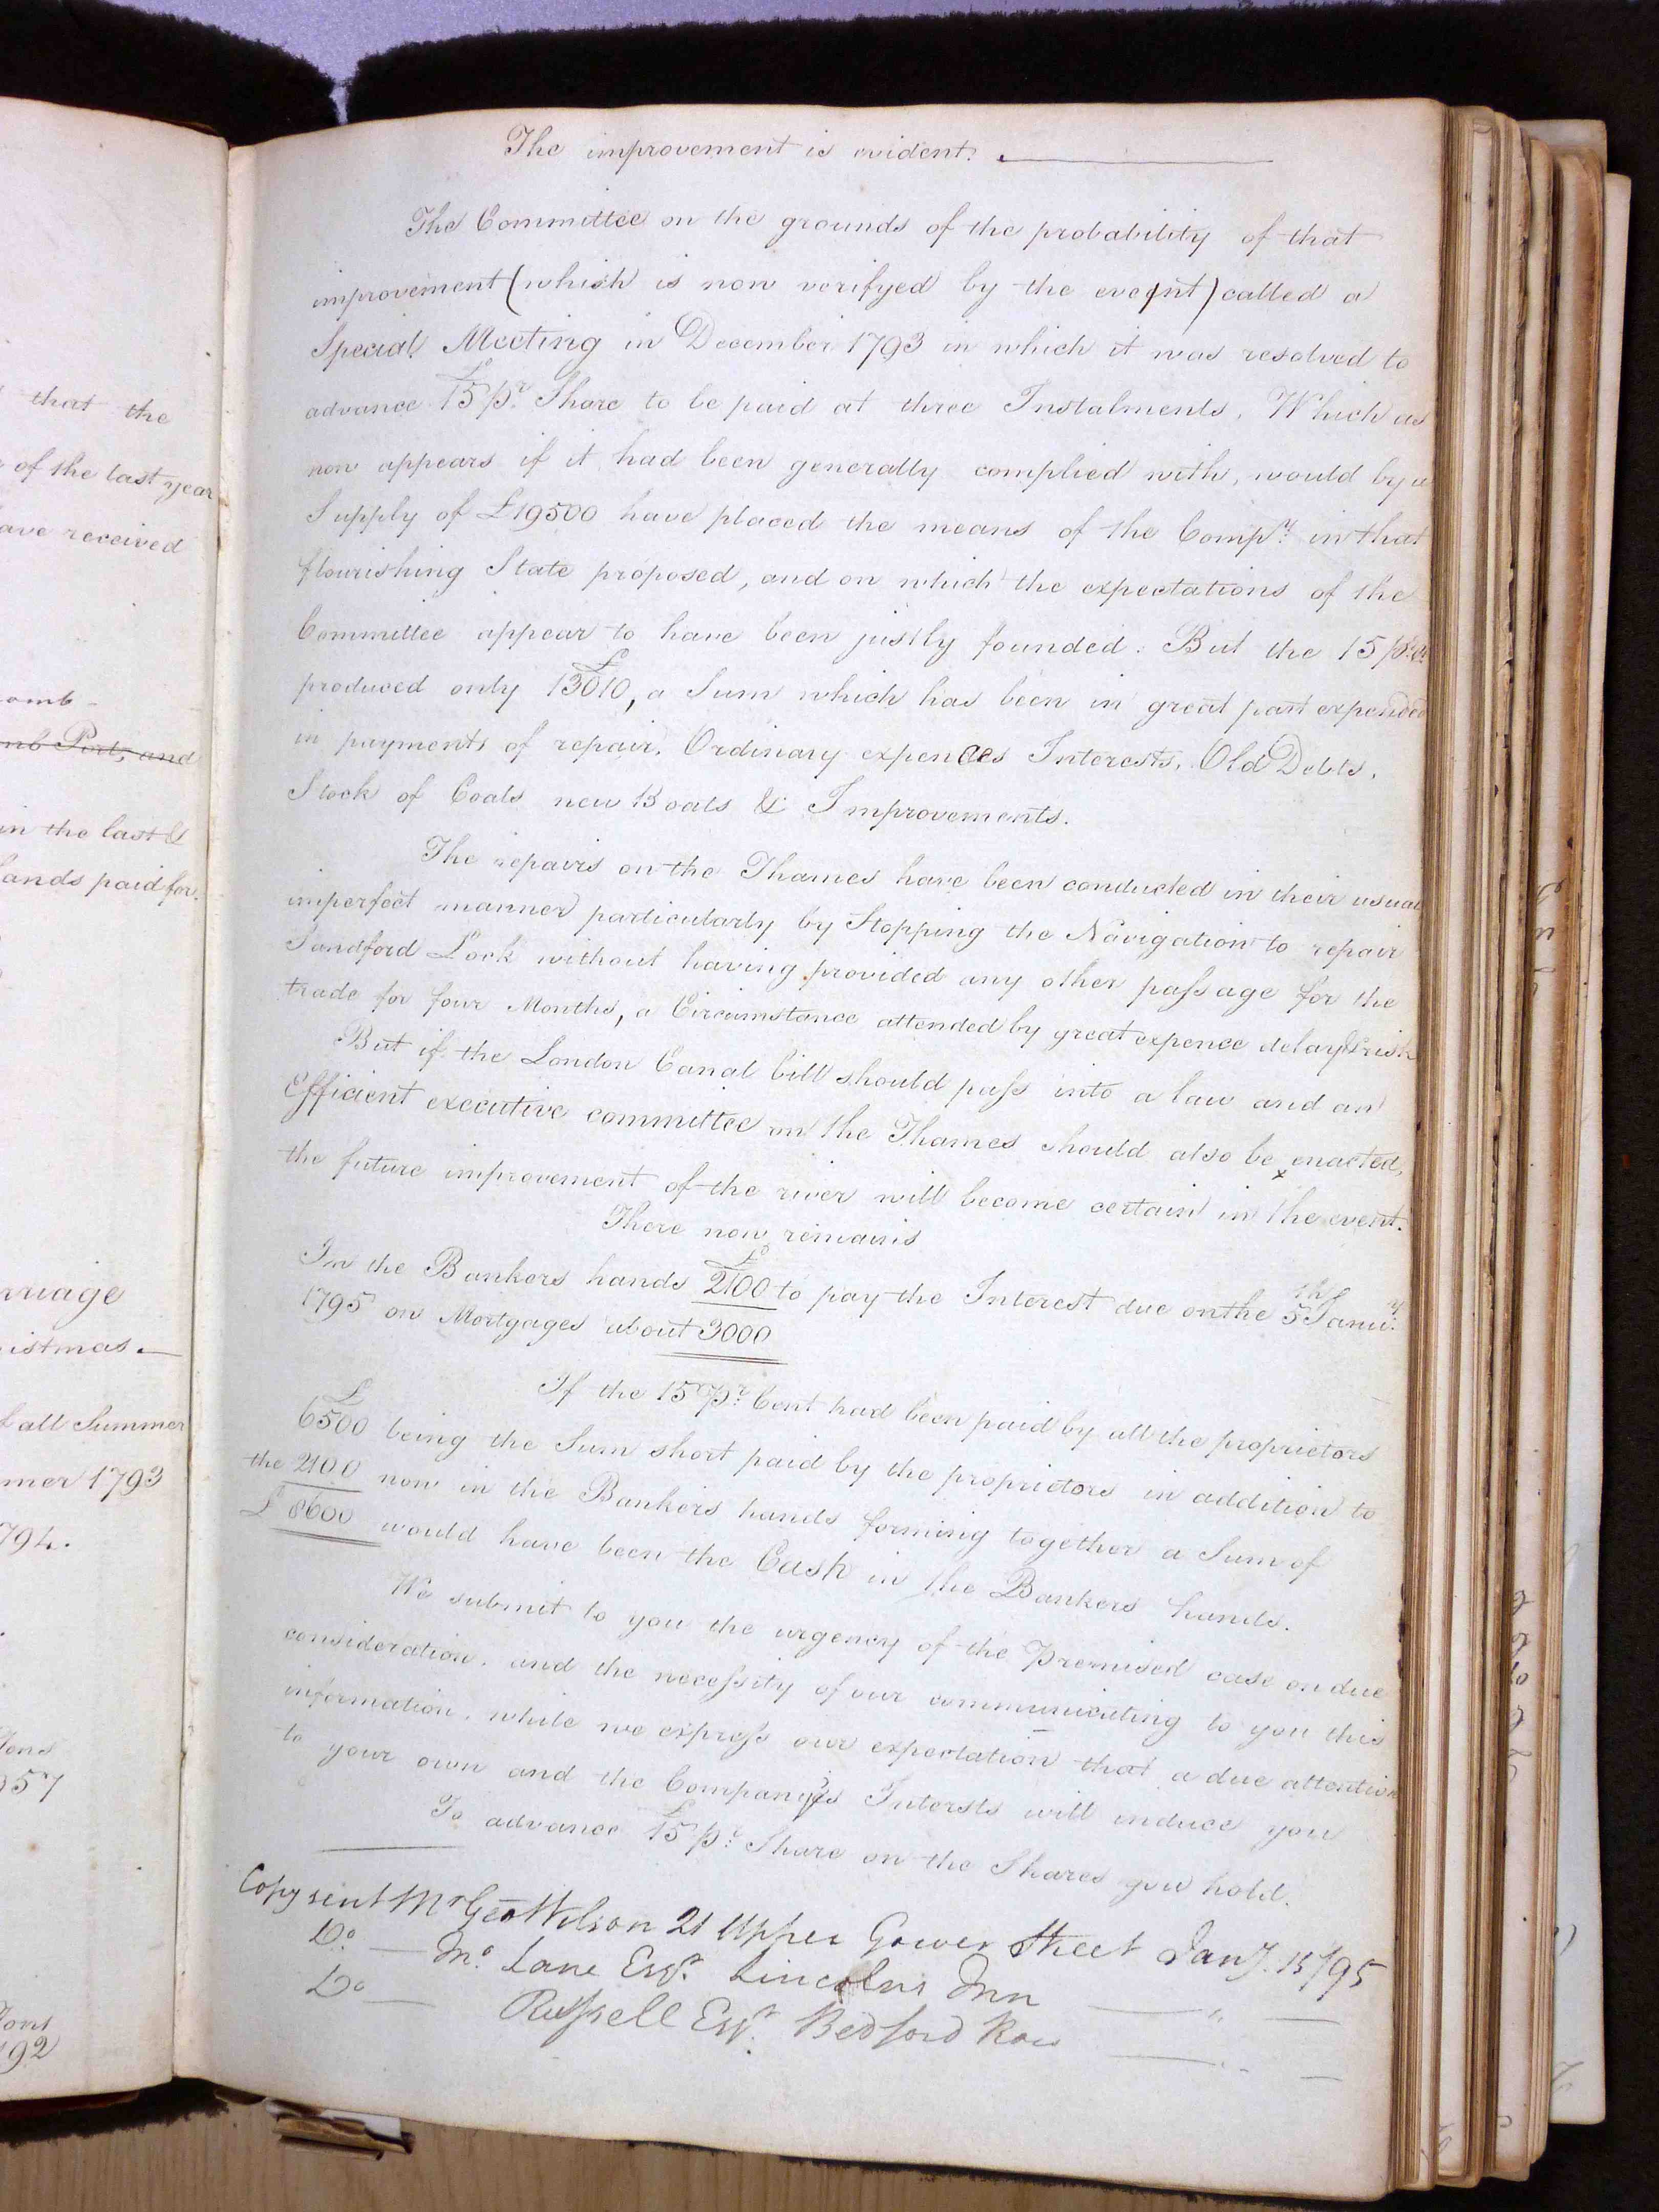 that the
of the last year
ave received
omb
mb Port, and
in the last &
ands paid for.
rriage
istmas.
all Summer
mer 1793
794.
Tons
957
Tons
192
The improvement is evident.
The Committee on the grounds of the probability of that
improvement (which is now verifyed by the event) called a
Special Meeting in December 1793 in which it was resolved to
advance £15 pr. Share to be paid at three Instalments. Which as
now appears if it had been generally complied with, would by a
Supply of £19500 have placed the means of the Compy. in that
flourishing State proposed, and on which the expectations of the
Committee appear to have been justly founded: But the 15 pr. Ct
produced only £13010, a Sum which has been in great part expended
in payments of repair. Ordinary expences Interests. Old Debts.
Stock of Coals new Boats & Improvements.
The repairs on the Thames have been conducted in their usual
imperfect manner particularly by Stopping the Navigation to repair
Sandford Lock without having provided any other passage for the
trade for four Months, a Circumstance attended by great expence delay & risk
But if the London Canal bill should pass into a law and an
Efficient executive committee on the Thames should also be enacted,
the future improvement of the river will become certain in the event.
There now remains
In the Bankers hands £2100 to pay the Interest due on the 5th Janu.y
1795 on Mortgages about 3000
If the 15 Pr. Cent had been paid by all the proprietors
£6500 being the Sum short paid by the proprietors in addition to
the 2100 now in the Bankers hands forming together a Sum of
£8600 would have been the Cash in the Bankers hands.
We submit to you the urgency of the Premised case on due
consideration. and the necessity of our communicating to you this
information. while we express our expectation that a due attention
to your own and the Company's Intersts will induce you
To advance £15 pr. Share on the Shares you hold.
Copy sent Mr Geo Wilson 21 Upper Gower Street Jany. 15 1795
Do. — Mo. Lane Esqr. Lincolns Inn — " —
Do — Russell Esqr. Bedford Row — " —